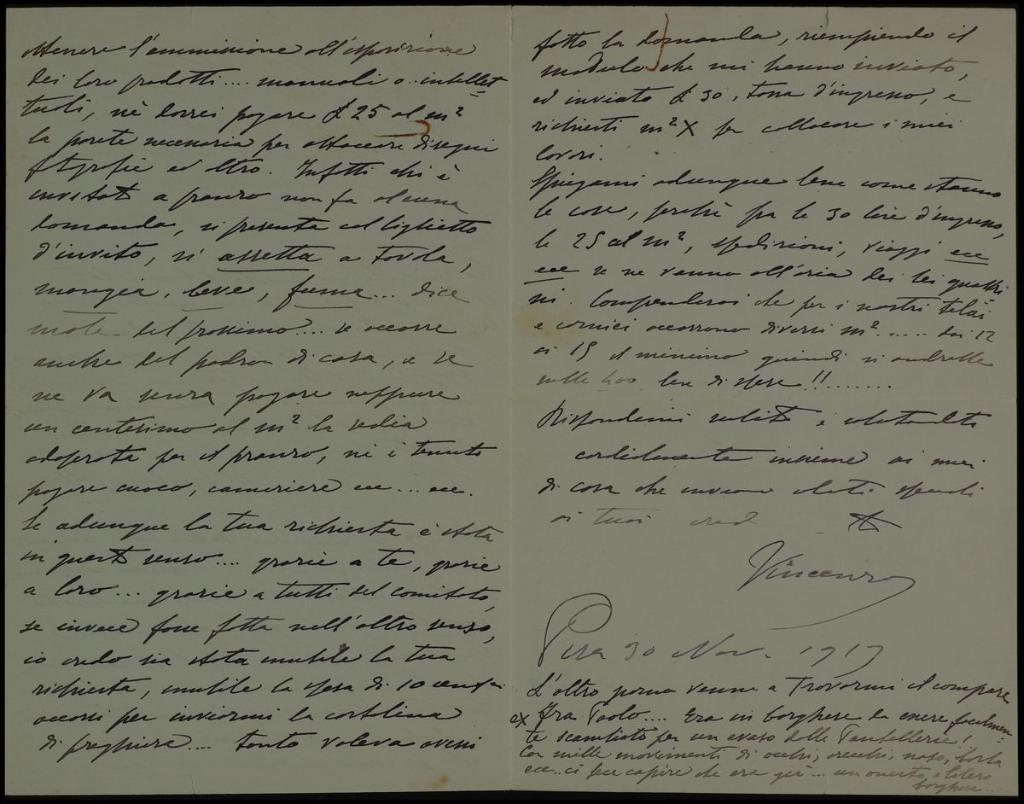 ottenere l'ammissione all'esposizione
dei loro prodotti.... manuali o intellet
tuali, nè dovrei pagare £ 25 al m²
la parete necessaria per attaccare disegni
fotografie ed altro. Infatti chi è
invitato a pranzo non fa alcuna
domanda, si presenta col biglietto
d'invito, si assetta a tavola,
mangia, beve, fuma... dice
male del prossimo.... se occorre
anche del padron di casa, e se
ne va senza pagare neppure
un centesimo al m² la sedia
adoperata per il pranzo, nè è tenuto
pagare cuoco, cameriere ecc... ecc.
Se adunque la tua richiesta è stata
in questo senso.... grazie a te, grazie
a loro... grazie a tutti del comitato,
se invece fosse fatta nell'altro senso,
io credo sia stata inutile la tua
richiesta, inutile la spesa di 10 centesimi
occorsi per inviarmi la cartolina
di preghiera.... tanto valeva avessi
fatto la domanda, riempiendo il
modulo che mi hanno inviato,
ed inviato £ 30, tassa d'ingresso, e
richiesti m² X per collocare i miei
lavori.
Spiegami adunque bene come stanno
le cose, perchè fra le 30 lire d'ingresso,
le 25 al m², spedizioni, viaggi ecc
ecc se ne vanno all'aria dei bei quattri
ni. Comprenderai che per i nostri telai
e cornici occorrono diversi m²..... dai 12
ai 15 il minimo quindi si andrebbe
sulle 400 lire di spese!!........
Rispondimi subito e salutandoti
cordialmente insieme ai miei
di casa che inviano saluti
ai tuoi
Vincenzo
Pisa 30 Nov. 1917
L'altro giorno venne a trovarmi il compare
ex Fra Paolo.... Era in borghese da essere facilmen-
te scambiato per un evaso delle Pantellerie!
Con mille movimenti di occhi, orecchi, naso, bocca
ecc.. ci fece capire che era già... un onesto e libero
borghese...